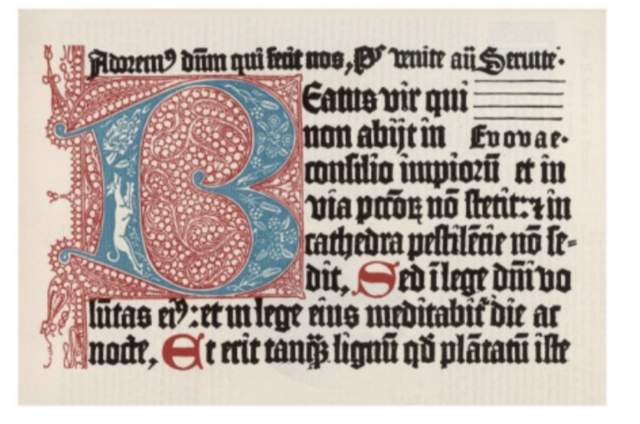 Adoremꝰ dūm qui fecit nos, Ps venite añ Seruite·
Beatus vir qui
non abijt in Evovae·
consilio impiorū et in
via pctōꝝ nō stetit: ⁊ in
cathedra pestilēcie nō se=
dit, Sed ī lege dñi vo
lūtas eiꝰ: et in lege eius meditabit᷑ die ac
nocte, Et erit tanqꝫ lignū qd̄ plātatū iste